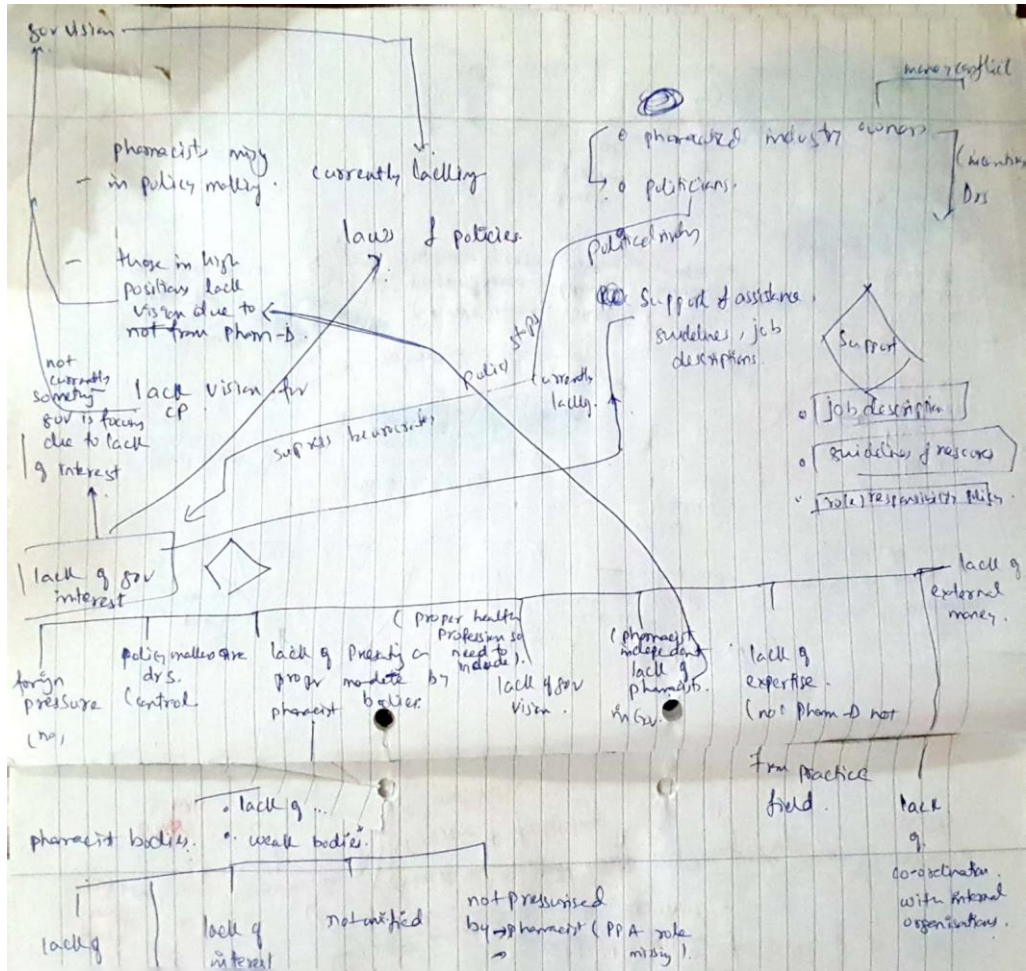 gov vision
money conflict
pharmacists
in policy making.
currently lacking
industry owners
politicians.
Drs
laws & policies.
political
those in high
positions lack
vision due to
not from Pharm-D.
Support & assistance,
guidelines, job
descriptions
Support
not
currently
gov is focus
due to lack
of interest
lack vision for
CP
policy stops
currently
lacking.
job description
guidelines & resources
role, responsibility policy
lack of gov
interest
lack of
external
money.
pressure
(no,
policy makers are
drs.
Control
lack of
proper
pharmacist
mandate by
bodies.
(proper health
Profession so
need to
include).
lack of gov
vision.
(pharmacist
independent
lack of
pharmacist.
in Gov.
lack of
expertise.
(not Pharm-D not
from practice
field.
lack
of
co-ordination
with internal
organisations.
pharmacist bodies.
• lack of ...
• weak bodies.
lack of
lack of
interest
not unified
not pressurised
by → pharmacist (PPA role
missing).